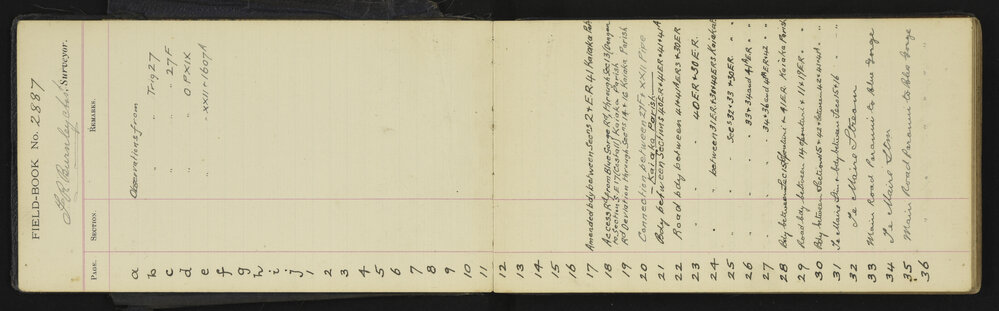 FIELD-BOOK No. 2887
Surveyor.
PAGE. SECTION. REMARKS.
a Observations from
b " Trig 27
c " " 27F
d " " O PXIK
e " " XXII + 1607A
f
g
h
i
j
1
2
3
4
5
6
7
8
9
10
11
12
13
14
15
16
17 Amended bdy between Secs 2 + E.R. 41 Kaiaka Psh
18 Access Rd from Blue Gums Rd through Sec 13
to Section 5 E 17 Kaiaka Parish
19 Rd Deviation through Secs 14 + 12 Kaiaka Parish
20 Connection between 27F + XXII Five
— Kaiaka Parish —
21 Bdy between Sections 40ER + 41ER + 41 + 41A
22 Road bdy between 41 + 41ERS + 30ER
23 " " " 40ER + 30ER.
24 " " between 31ER + 30 + 40ERS Kaiaka
25 " " " Secs 32 + 33 + 30ER "
26 " " " 33 + 34 and 41AER "
27 " " " 34 + 36 and 41AER + 42 "
28 Bdy between Secs + 41ER Kaiaka Parish
29 Road bdy between 14 + 11 + 19ER "
30 Bdy between Sections 15 + 42 + between 42 + 41 + 41A "
31 Te Maire Stm + bdy between Secs 15 + 16 "
32 Te Maire Stream
33 Main Road Peranui to Blue Gorge
34 Te Maire Stm
35 Main Road Paranui to Blue Gorge
36 " " " "